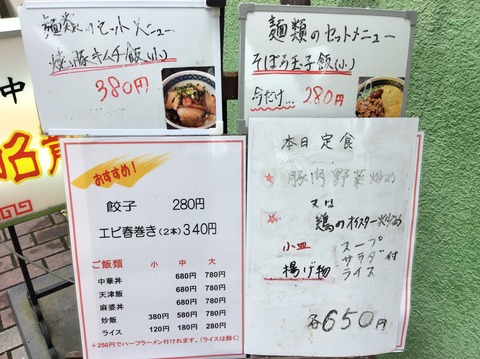 麺類のセットメニュー
焼豚キムチ飯(小)
380円
麺類のセットメニュー
そぼろ玉子飯(小)
今だけ… 280円
中
おすすめ!
餃子 280円
エビ春巻き(2本) 340円
ご飯類 小 中 大
中華丼 680円 780円
天津飯 680円 780円
麻婆丼 680円 780円
炒飯 380円 580円 780円
ライス 120円 180円 280円
+250円でハーフラーメン付けれます。(ライスは除く)
本日定食
豚肉野菜炒め
又は
鶏のオイスター炒め
小皿
揚げ物
スープ
サラダ付
ライス
各650円